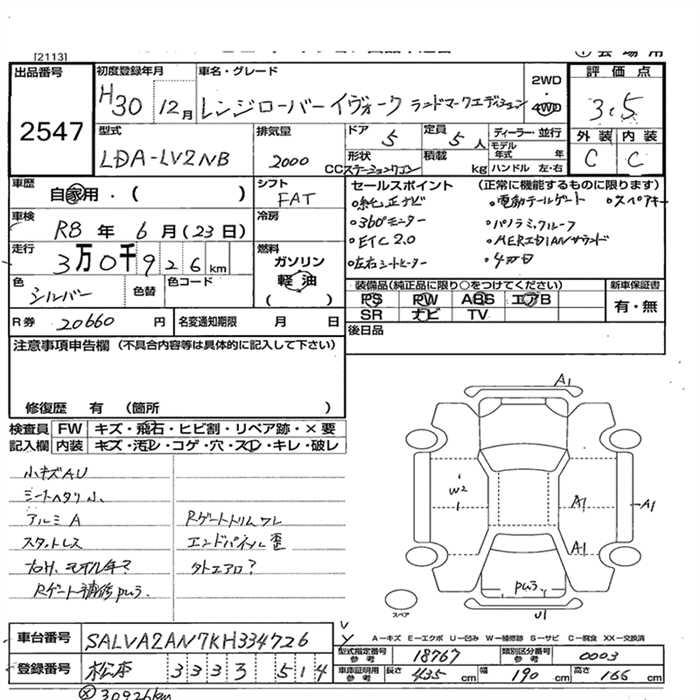 [2113]
出品番号 2547
初度登録年月 H30 12月
車名・グレード レンジローバーイヴォーク ランドマークエディション
2WD
4WD
評価点 3.5
外装 内装
C C
型式 LDA-LV2NB
排気量 2000 CC
ドア 5
形状 ステーションワゴン
定員 5人
積載 kg
ディーラー・並行
モデル年式 年
ハンドル 左・右
車歴 自家用・( )
シフト FAT
車検 R8年 6月(23日)
冷房
走行 3万0千926km
燃料 ガソリン
軽油
( )
色 シルバー
色替
色コード
R券 20660円
名変通知期限 月 日
セールスポイント (正常に機能するものに限ります)
・純正ナビ ・電動テールゲート ・スペアキー
・360°モニター ・パノラミックルーフ
・ETC2.0 ・MERIDIANサウンド
・左右シートヒーター ・4WD
装備品(純正品に限り○をつけてください) 新車保証書
PS PW ABS エアB
SR ナビ TV
有・無
後日品
注意事項申告欄 (不具合内容等は具体的に記入して下さい)
修復歴 有 (箇所 )
検査員記入欄
FW キズ・飛石・ヒビ割・リペア跡・×要
内装 キズ・汚レ・コゲ・穴・スレ・キレ・破レ
小キズAU
シートヘタリ小
アルミA
スタットレス
Rゲート補修pu3
Rゲートトリムワレ
エンドパネル歪
外エアロ?
A1
W2
A1
A1
A1
pu3
U1
スペア
A-キズ E-エクボ U-凹み W-補修跡 S-サビ C-腐食 XX-交換済
車台番号 SALVA2AN7KH334726
登録番号 松本 333 る 514
型式指定番号 参考 18767
類別区分番号 参考 0003
車庫証明用 参考 長さ 435cm 幅 190cm 高さ 166cm
30926km